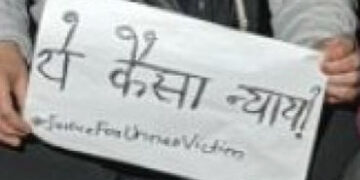 ये कैसा न्याय!
#JusticeForUnnaoVictim